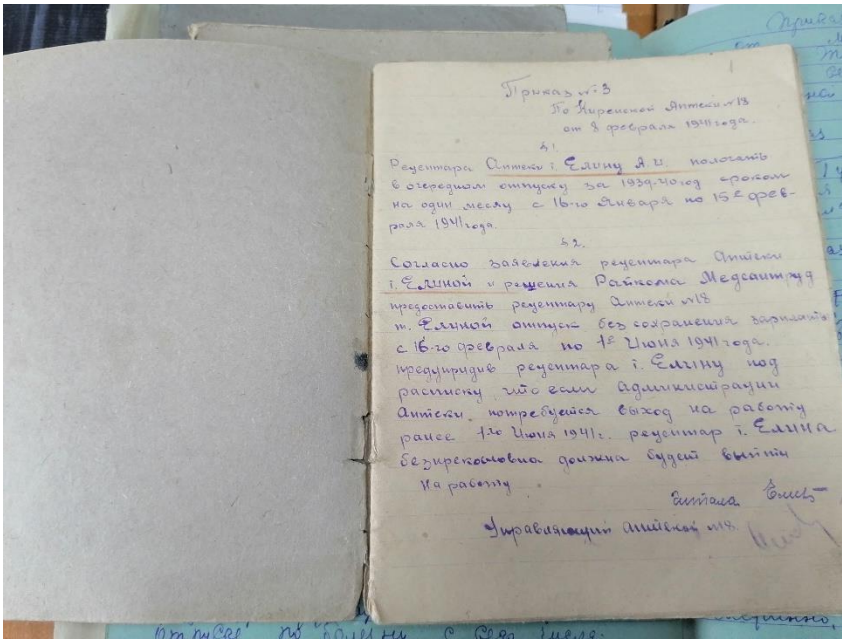 Приказ №3
По Киренской Аптеки №18
от 8 февраля 1941 года.
§1.
Рецептара Аптеки т. Елину А.И. пологать
в очередном отпуску за 1939-40 год сроком
на один месяц с 16-го Января по 15е фев-
раля 1941 года.
§2.
Согласно заявления рецептара Аптеки
т. Елиной и решения Райкома Медсантруд
предоставить рецептару Аптеки №18
т. Елиной отпуск без сохранения зарплаты
с 16-го февраля по 1е Июня 1941 года.
предупридив рецептара т. Елину под
расписку что если администрации
Аптеки потребуется выход на работу
ранее 1го Июня 1941 г. рецептар т. Елина
безпрекословна должна будет выйти
на работу
Читала Елина
Управляющий аптекой №18.
отпуск по болезни с